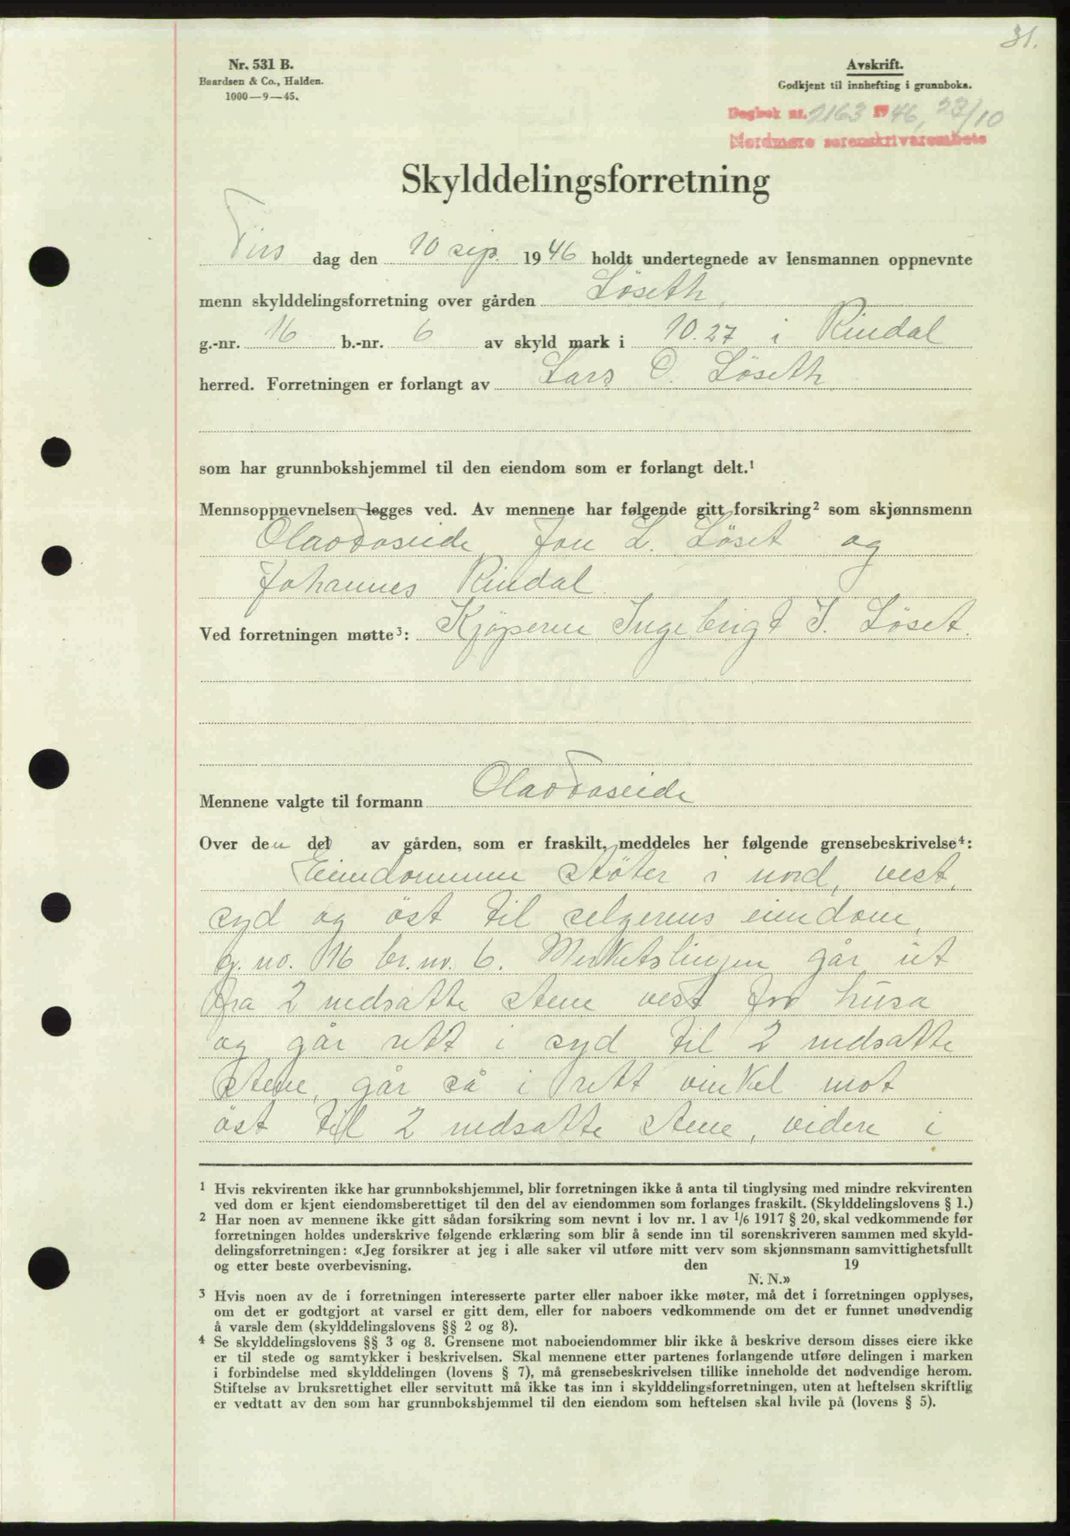 31.
Nr. 531 B.
Baardsen & Co., Halden.
1000—9—45.
Avskrift.
Godkjent til innhefting i grunnboka.
Dagbok nr. 2163 1946, 23/10
Nordmøre sorenskriverembete
Skylddelingsforretning
Tirs dag den 10 sep. 1946 holdt undertegnede av lensmannen oppnevnte
menn skylddelingsforretning over gården Löseth,
g.-nr. 16 b.-nr. 6 av skyld mark i 10.27 i Rindal
herred. Forretningen er forlangt av Lars O. Löseth
som har grunnbokshjemmel til den eiendom som er forlangt delt.¹
Mennsoppnevnelsen legges ved. Av mennene har følgende gitt forsikring² som skjønnsmenn
Jon L. Löset og
Johannes Rindal.
Ved forretningen møtte³: Kjöperen Ingebrigt J. Löset.
Mennene valgte til formann
Over den del av gården, som er fraskilt, meddeles her følgende grensebeskrivelse⁴:
Eiendommen stöter i nord, vest,
syd og öst til selgerens eiendom,
g. no. 16 br. nr. 6. Merketslinjen går ut
fra 2 nedsatte stene vest for husa
og går rett i syd til 2 nedsatte
stene, går så i rett vinkel mot
öst til 2 nedsatte stene, videre i
¹ Hvis rekvirenten ikke har grunnbokshjemmel, blir forretningen ikke å anta til tinglysing med mindre rekvirenten
ved dom er kjent eiendomsberettiget til den del av eiendommen som forlanges fraskilt. (Skylddelingslovens § 1.)
² Har noen av mennene ikke gitt sådan forsikring som nevnt i lov nr. 1 av 1/6 1917 § 20, skal vedkommende før
forretningen holdes underskrive følgende erklæring som blir å sende inn til sorenskriveren sammen med skyld-
delingsforretningen: «Jeg forsikrer at jeg i alle saker vil utføre mitt verv som skjønnsmann samvittighetsfullt
og etter beste overbevisning. den 19
N. N.»
³ Hvis noen av de i forretningen interesserte parter eller naboer ikke møter, må det i forretningen opplyses,
om det er godtgjort at varsel er gitt dem, eller for naboers vedkommende om det er funnet unødvendig
å varsle dem (skylddelingslovens §§ 2 og 8).
⁴ Se skylddelingslovens §§ 3 og 8. Grensene mot naboeiendommer blir ikke å beskrive dersom disses eiere ikke
er til stede og samtykker i beskrivelsen. Skal mennene etter partenes forlangende utføre delingen i marken
i forbindelse med skylddelingen (lovens § 7), må grensebeskrivelsen tillike inneholde det nødvendige herom.
Stiftelse av bruksrettighet eller servitutt må ikke tas inn i skylddelingsforretningen, uten at heftelsen skriftlig
er vedtatt av den som har grunnbokshjemmel til den eiendom som heftelsen skal hvile på (lovens § 5).